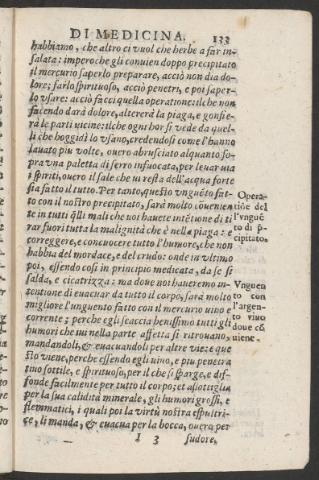 DI MEDICINA. 133
habbiamo, che altro ci vuol che herbe a far in-
salata: imperoche gli conuien doppo precipitato
il mercurio saperlo preparare, acciò non dia do-
lore; farlo spirituoso, acciò penetri, e poi saper-
lo vsare: acciò facci quella operatione: il che non
facendo darà dolore, altererà la piaga, e gonfie-
rà le parti vicine: il che ogni hor si vede da quel-
li che hoggidì lo vsano, credendosi come l'hanno
lauato piu volte, ouero abrusciato alquanto so-
pra vna paletta di ferro infuocata, per leuar via
i spiriti, ouero il sale che vi resta dell'acqua forte
sia fatto il tutto. Per tanto, questo vnguẽto fat-
to con il nostro precipitato, sarà molto cõuenien-
te in tutti q̃lli mali che noi hauete intẽtione di ti
rar fuori tutta la malignità che è nella piaga: e
correggere, e concuocere tutto l'humore, che non
habbia del mordace, e del crudo: onde in vltimo
poi, essendo così in principio medicata, da se si
salda, e cicatrizza: ma doue non haueremo in-
tentione di euacuar da tutto il corpo, sarà molto
migliore l'unguento fatto con il mercurio viuo e
corrente; perche egli scaccia benissimo tutti gli
humori che iui nella parte affetta si ritrouano,
mandandoli, & euacuandoli per altre vie: e que
sto viene, perche essendo egli viuo, e piu penetra
tiuo sottile, e spirituoso, per il che si sparge, e dif-
fonde facilmente per tutto il corpo; et assottiglia
per la sua calidità minerale, gli humori grossi, e
flemmatici, i quali poi la virtù nostra espultri-
ce, li manda, & euacua per la bocca, ouero per
I 3 sudore,
Opera-
tiõe del
l'vnguẽ
to di p̃-
cipitato.
Vnguen
to con
l'argen-
to viuo
doue cõ
uiene.